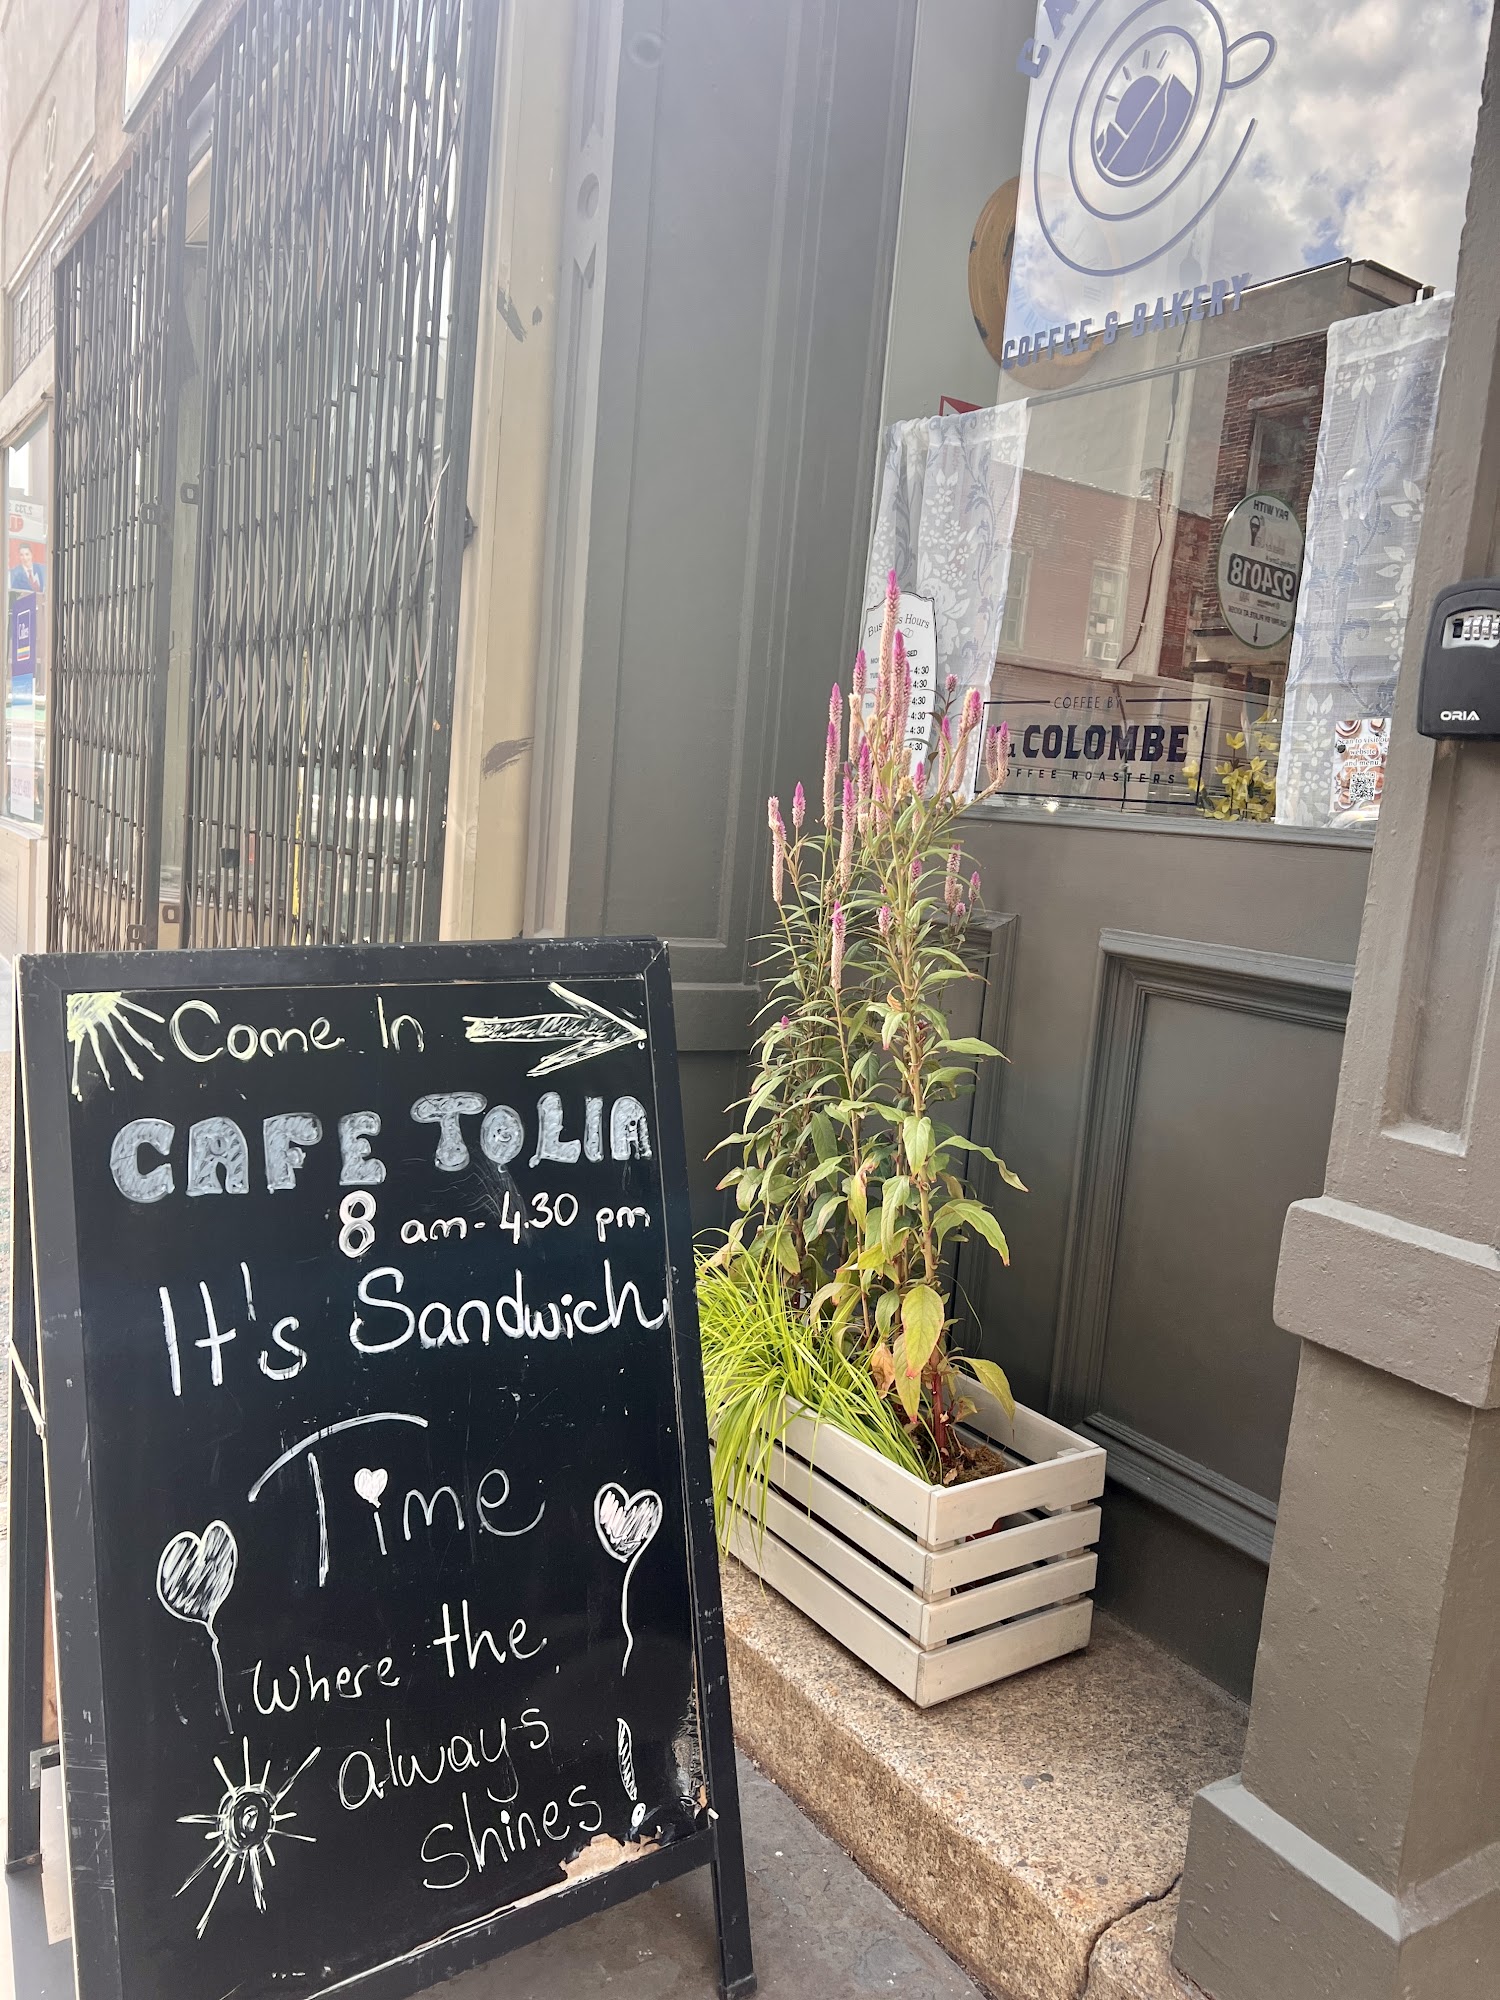 Come In
CAFE TOLIA
8 am - 4.30 pm
It's Sandwich
Time
Where the
always
shines!
COFFEE & BAKERY
PAY WITH
924018
Business Hours
4:30
4:30
4:30
4:30
4:30
:30
COFFEE BY
La COLOMBE
COFFEE ROASTERS
Scan to visit our
website
and menu
ORIA